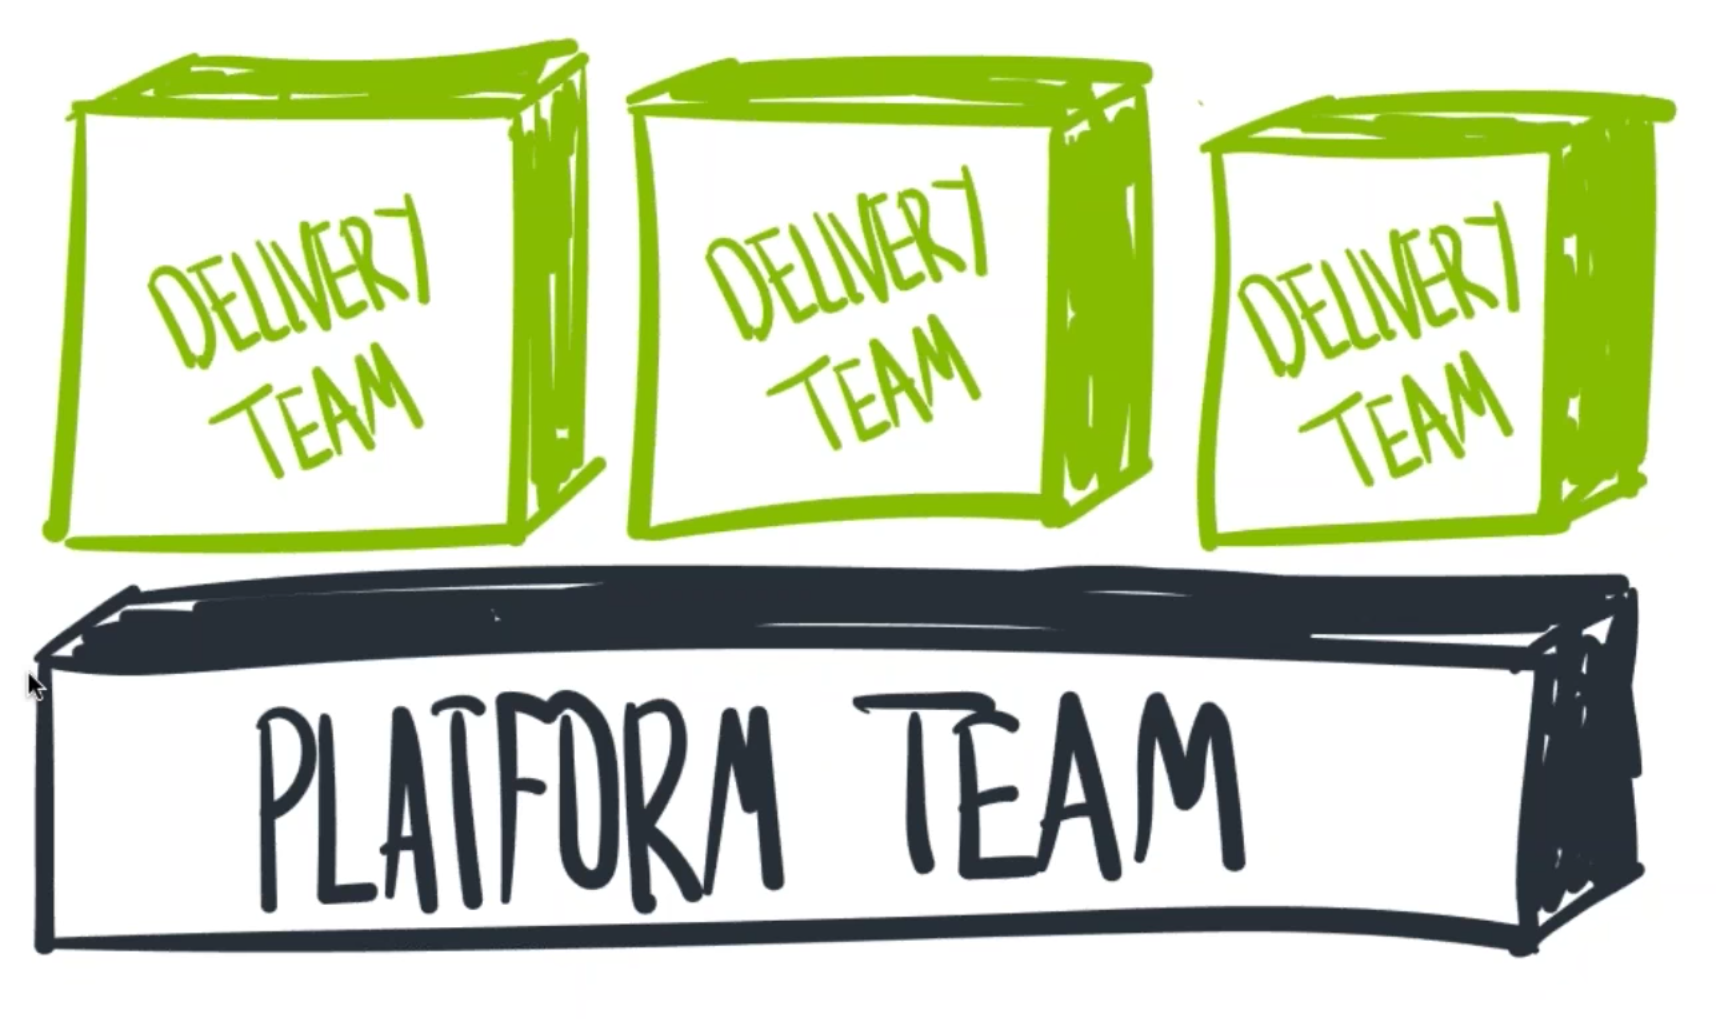 DELIVERY
TEAM
DELIVERY
TEAM
DELIVERY
TEAM
PLATFORM TEAM